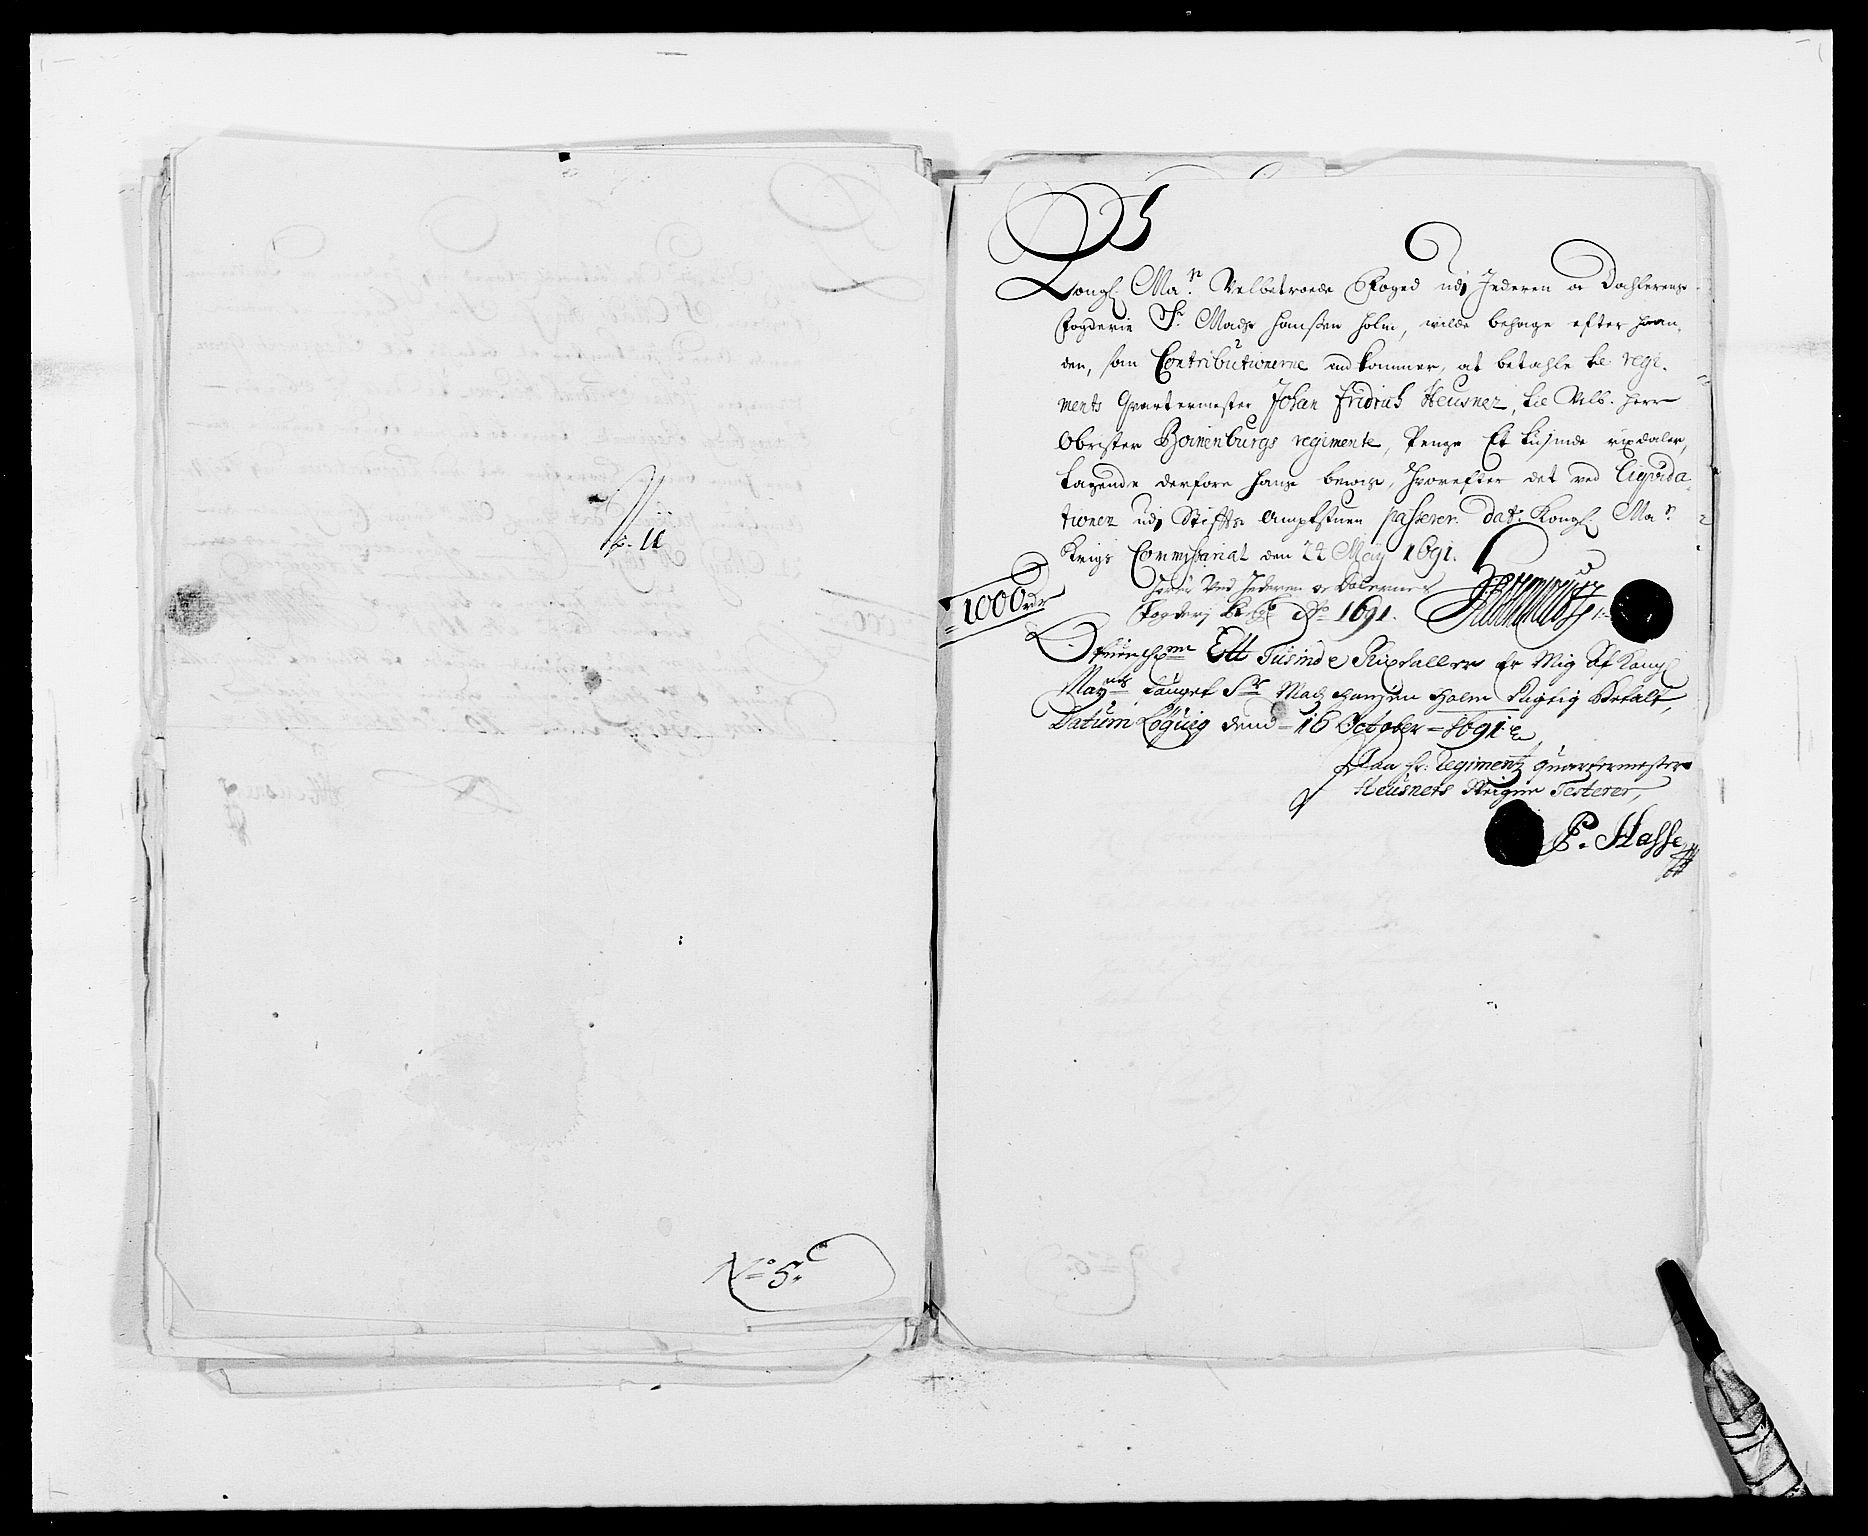 p. 11
No 5.
Kongl. Ma.tz Velbetroede Foged udj Jederen oc Dahlerens
fogderie Sr. Madz Hanßen Holm, wilde behage efter haan,
den, som Contributionerne indkommer, at betahle til regi,
ments Qvartermester Johan Fridrich Heusner, til Velb. Herr
Obrister Boinenburgs regimente, Penge Et tusinde rixdaler,
tagende derfore hans bewiis, hvorefter det ved liqvida,
tionen udj Stifts Amptstuen passerer. Dat. Kongl. Ma.tz
Krigs Commissariat den 22 May 1691.
Ved Jederen oc Dalernes
Fogderj Ao 1691.
1000 rdr
Ett Tusinde Rixdaller er Mig Af Kongl
May.tts fouget Sr Madz Hansen Holm Rigtig Betalt,
Datum den 16 October 1691
Paa Hr. Regimentz Quartermester
Heusners Weigne Testerer,
P. Hasse